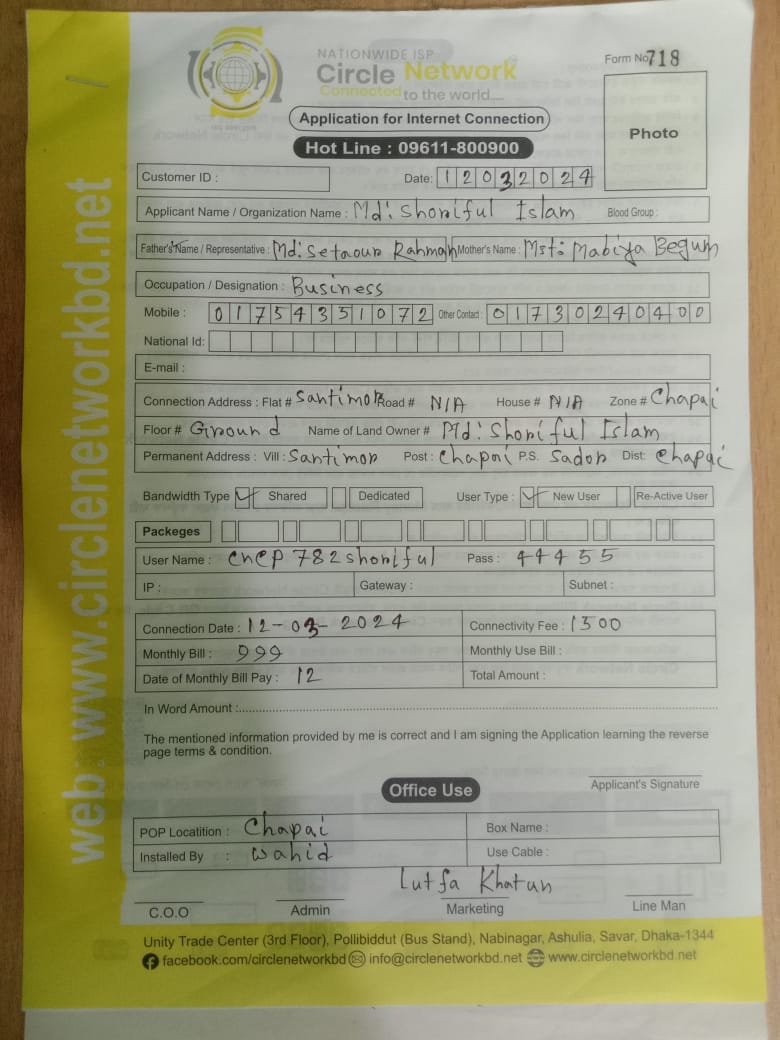 NATIONWIDE ISP
Circle Network
Connected to the world....
Form No 718
Application for Internet Connection
Photo
Hot Line : 09611-800900
Customer ID :
Date: 12032024
Applicant Name / Organization Name : Md: Shoriful Islam Blood Group :
Father's Name / Representative : Md: Setaour Rahman Mother's Name : Mst: Mabiya Begum
Occupation / Designation : Business
Mobile : 01754351072 Other Contact : 01730240400
National Id:
E-mail :
Connection Address : Flat # Santimor Road # N/A House # N/A Zone # Chapai
Floor # Ground Name of Land Owner # Md: Shoriful Islam
Permanent Address : Vill : Santimor Post : Chapai P.S. Sador Dist: Chapai
Bandwidth Type Shared Dedicated User Type : New User Re-Active User
Packeges
User Name : cncp782shoriful Pass : 44455
IP : Gateway : Subnet :
Connection Date : 12-03-2024 Connectivity Fee : 1500
Monthly Bill : 999 Monthly Use Bill :
Date of Monthly Bill Pay : 12 Total Amount :
In Word Amount :
The mentioned information provided by me is correct and I am signing the Application learning the reverse
page terms & condition.
Applicant's Signature
Office Use
POP Locatition : Chapai Box Name :
Installed By : Wahid Use Cable :
Lutfa Khatun
C.O.O Admin Marketing Line Man
Unity Trade Center (3rd Floor), Pollibiddut (Bus Stand), Nabinagar, Ashulia, Savar, Dhaka-1344
facebook.com/circlenetworkbd info@circlenetworkbd.net www.circlenetworkbd.net
web: www.circlenetworkbd.net